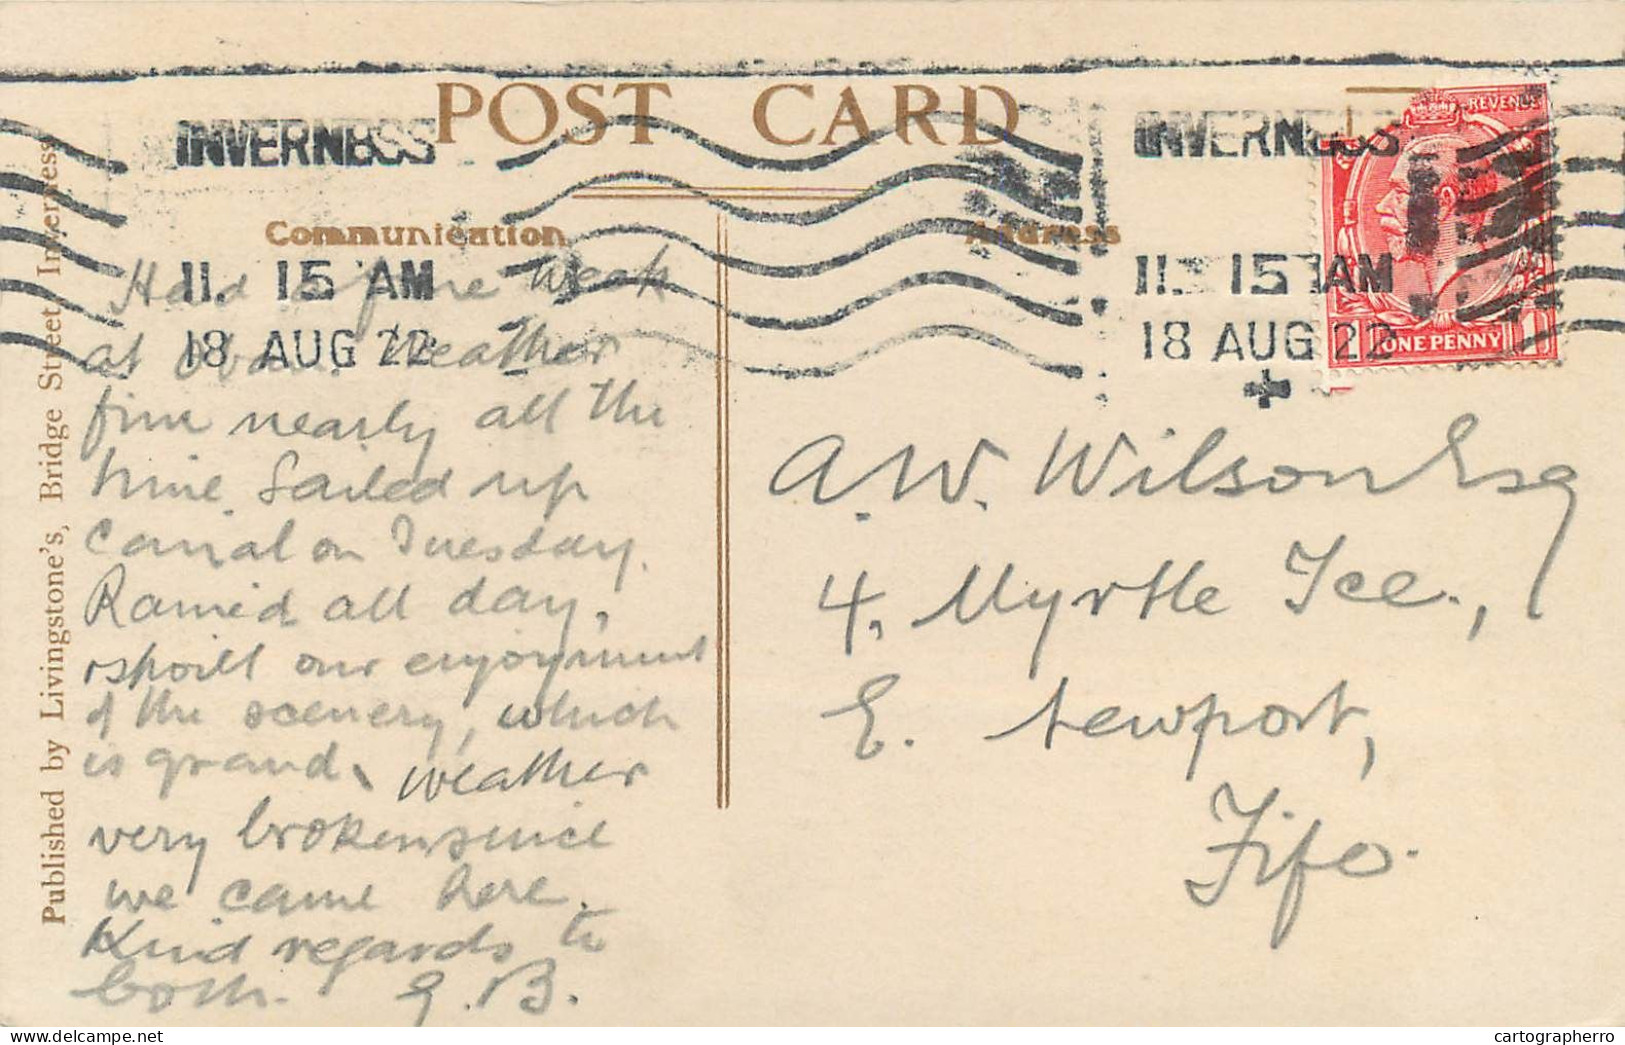 POST CARD
INVERNESS
11. 15 AM
18 AUG 22
INVERNESS
11. 15 AM
18 AUG 22
REVENUE
ONE PENNY
Communication
Address
Had a fine week
at Oban. Weather
fine nearly all the
time. Sailed up
Canal on Tuesday.
Rained all day,
spoilt our enjoyment
of the scenery, which
is grand. Weather
very broken since
we came here.
Kind regards to
both. G.B.
A. W. Wilson Esq
4, Myrtle Tce.,
E. Newport,
Fife.
Published by Livingstone's, Bridge Street, Inverness
cartographerro